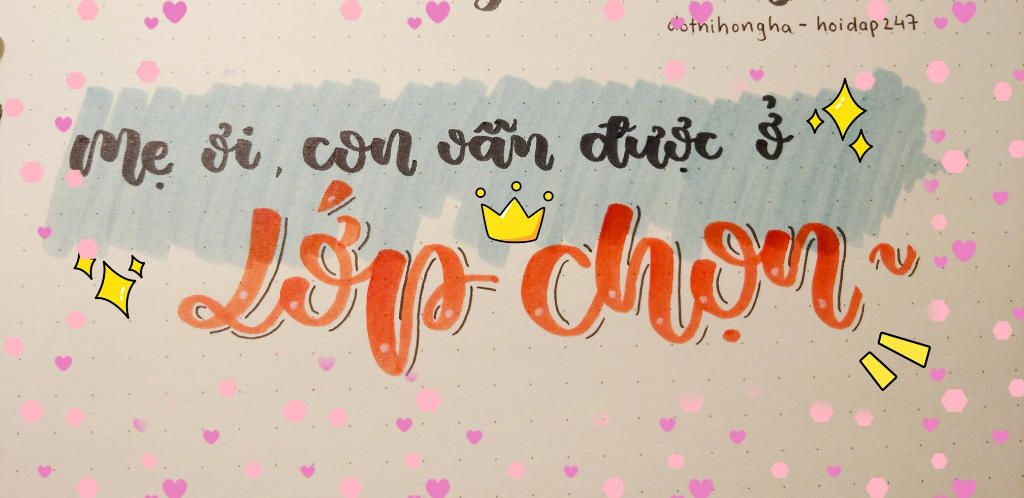 dotnihongha - hoidap247
Mẹ ơi, con vẫn được ở
Lớp chọn ~